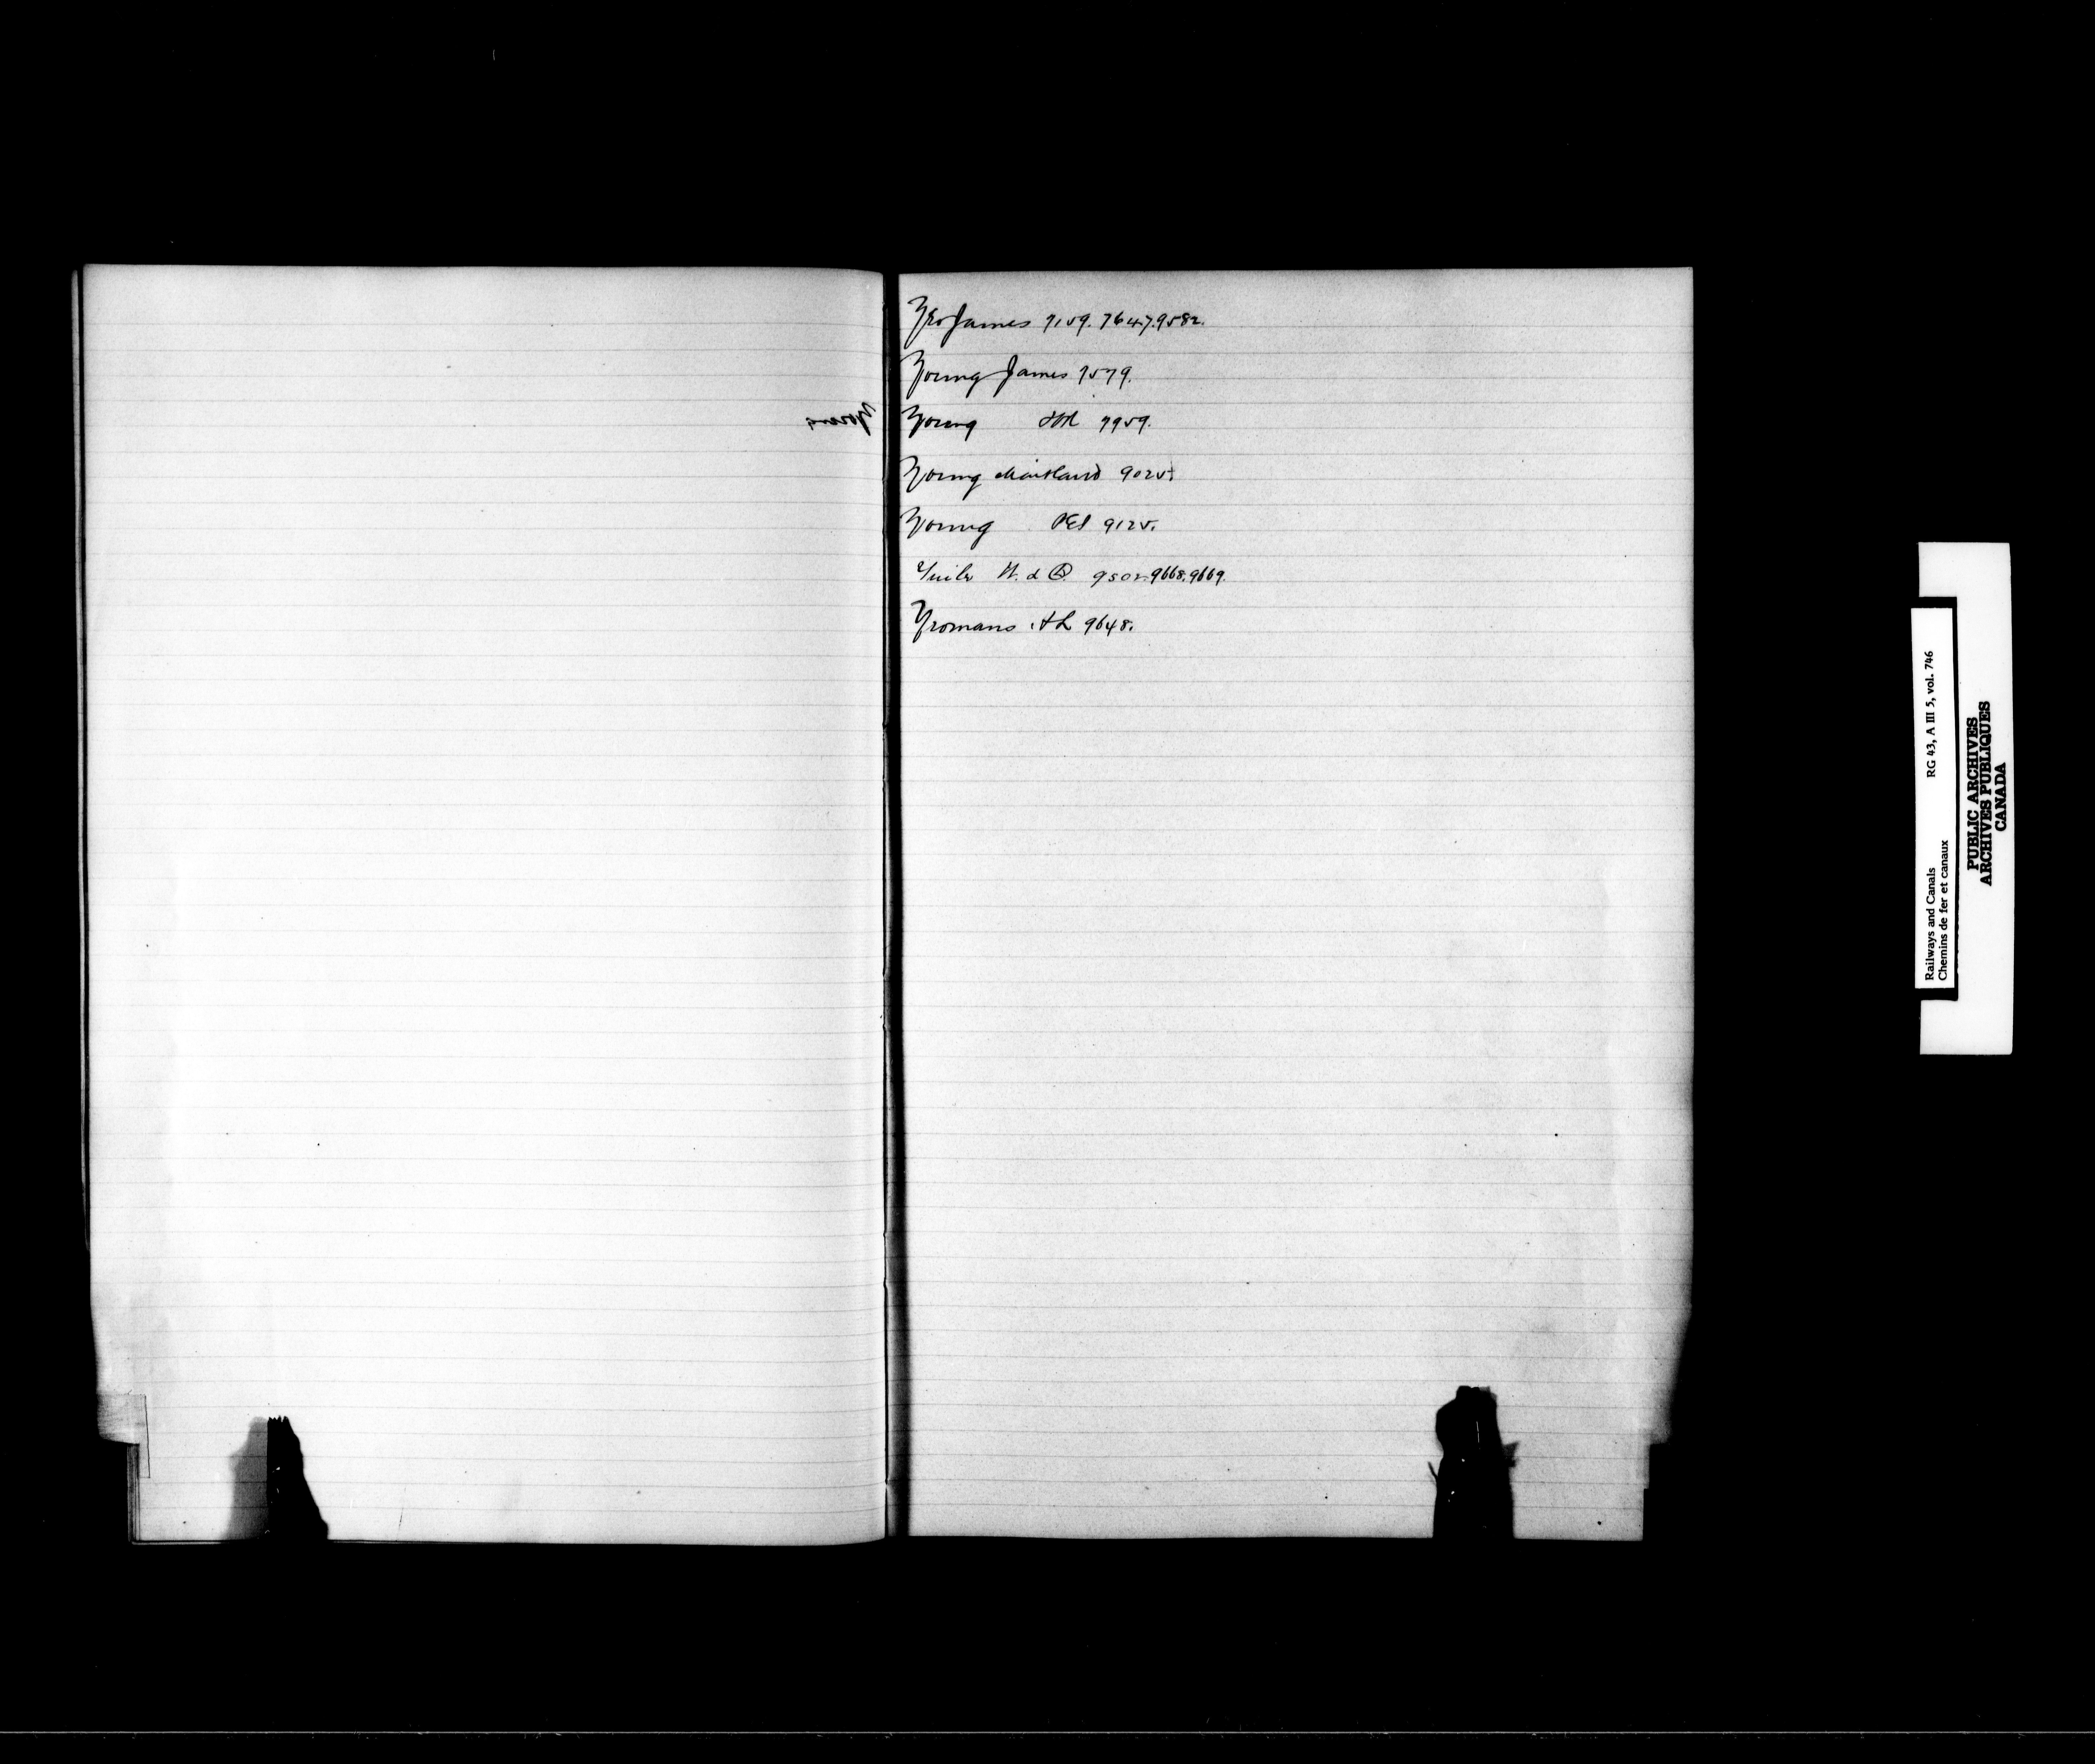 Yeo James 7159. 7647. 9582.
Young James 7579.
Young 7959.
Young Maitland 9025.
Young 9125.
9502. 9668. 9669.
Yeomans 9648.
Railways and Canals RG 43, A III 5, vol. 746
Chemins de fer et canaux
PUBLIC ARCHIVES
ARCHIVES PUBLIQUES
CANADA